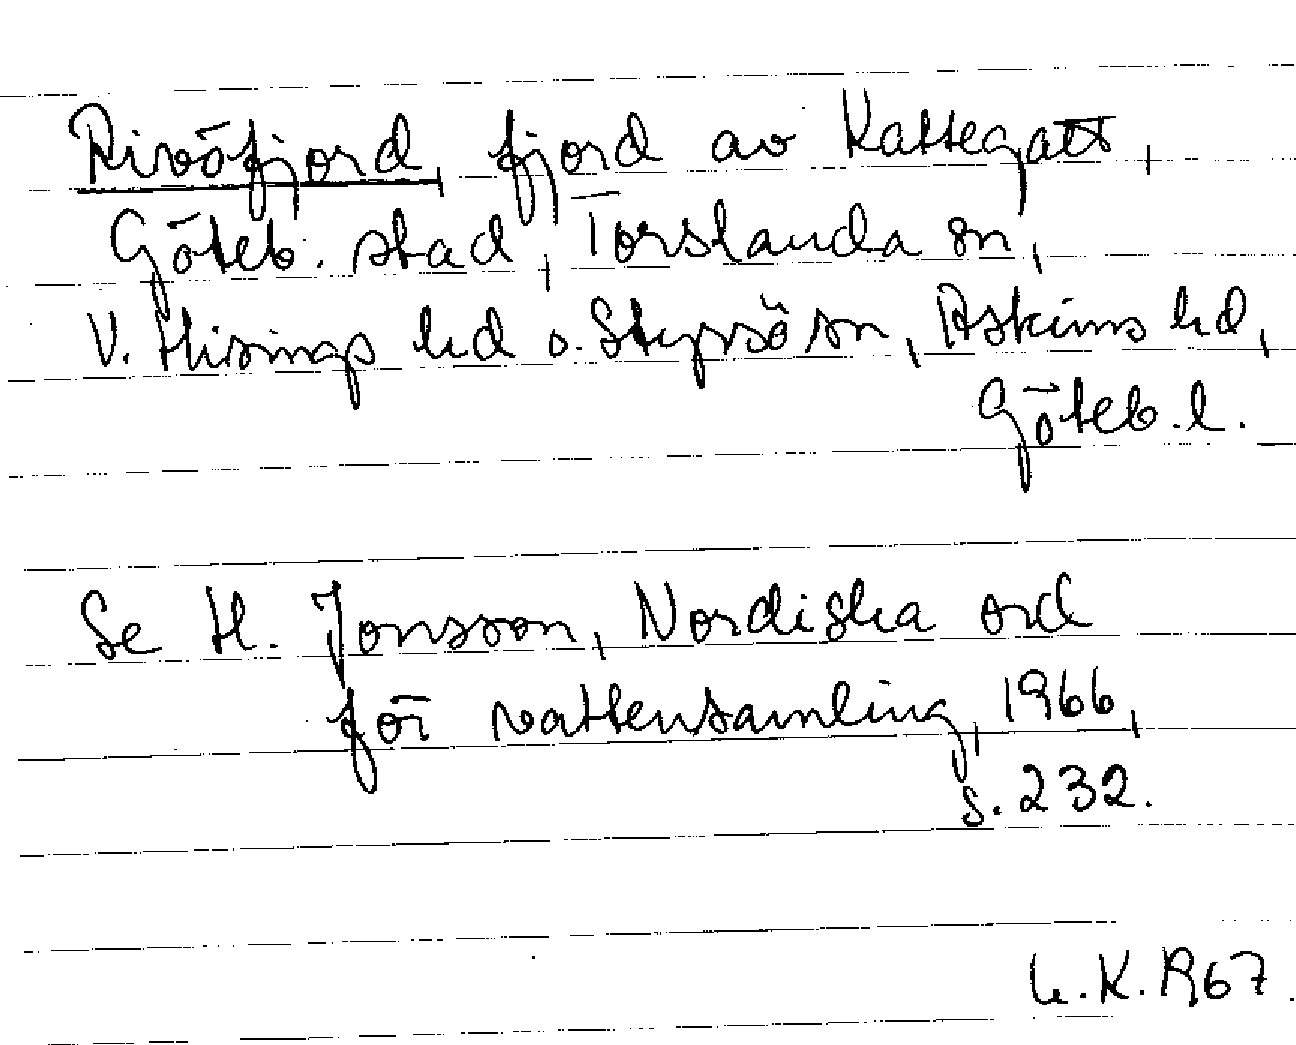 Rivöfjord, fjord av Kattegatt,
Göteb. stad, Torslanda sn,
V. Hisings hd o. Styrsö sn, Askims hd,
Göteb. l.
Se H. Jonsson, Nordiska ord
för vattensamling, 1966,
s. 232.
K. R67.